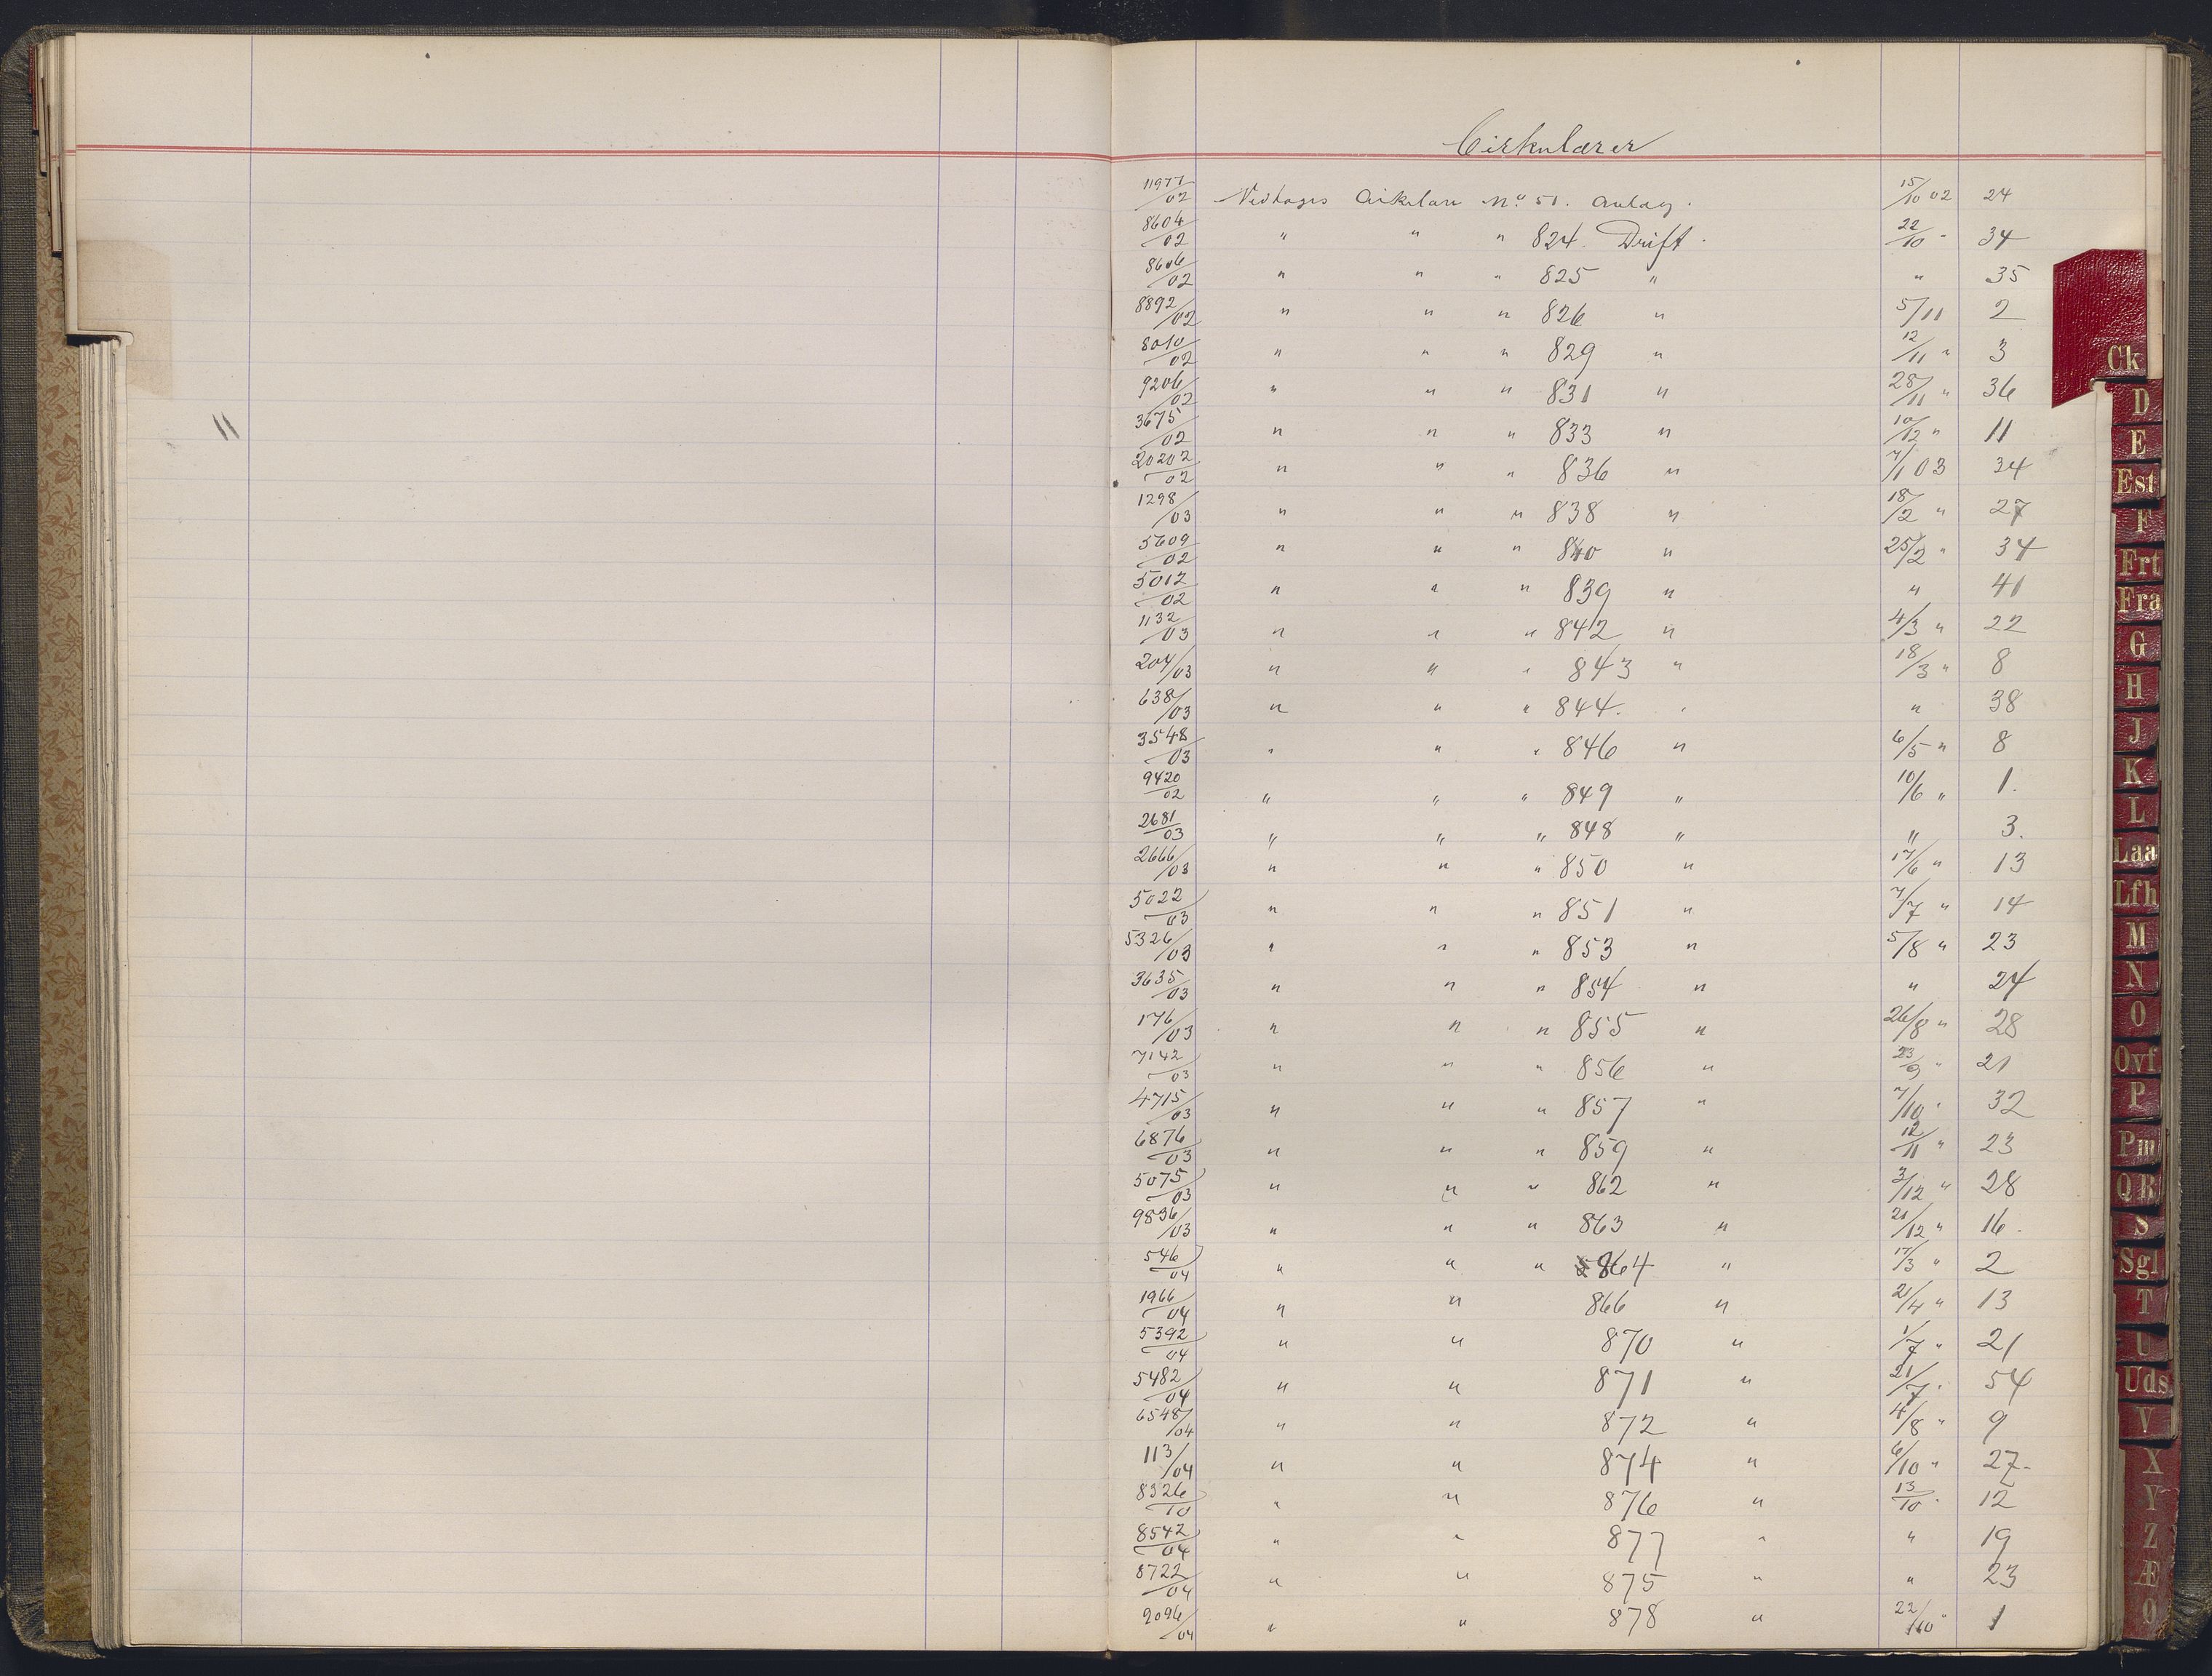 Cirkulærer
11977/02 Vedtages Cirkulære No 51. Anlæg. 15/10 02 24
8604/02 " " " 824. Drift. 22/10 " 34
8606/02 " " " 825 " " 35
8892/02 " " " 826 " 5/11 2
8010/02 " " " 829 " 12/11 " 3
9206/02 " " " 831 " 28/11 " 36
3675/02 " " " 833 " 10/12 " 11
20202/02 " " " 836 " 7/1 03 34
1298/03 " " " 838 " 18/2 " 27
5609/02 " " " 840 " 25/2 " 34
5012/02 " " " 839 " " 41
1132/03 " " " 842 " 4/3 " 22
204/03 " " " 843 " 18/3 " 8
638/03 " " " 844. " " 38
3548/03 " " " 846 " 6/5 " 8
9420/02 " " " 849 " 10/6 " 1.
2681/03 " " " 848 " " 3.
2666/03 " " " 850 " 17/6 " 13
5022/03 " " " 851 " 7/7 " 14
5326/03 " " " 853 " 5/8 " 23
3635/03 " " " 854 " " 24
176/03 " " " 855 " 26/8 " 28
7142/03 " " " 856 " 23/9 " 21
4715/03 " " " 857 " 7/10 " 32
6876/03 " " " 859 " 12/11 " 23
5075/03 " " " 862 " 3/12 " 28
9836/03 " " " 863 " 21/12 " 16.
546/04 " " " 864 " 17/3 " 2
1966/04 " " 866 " 21/4 " 13
5392/04 " " 870 " 1/7 " 21
5482/04 " " 871 " 21/7 " 54
6548/04 " " 872 " 4/8 " 9
113/04 " " 874 " 6/10 " 27.
8326/10 " " 876 " 13/10 " 12
8542/04 " " 877 " " 19
8722/04 " " 875 " " 23
9096/04 " " 878 " 22/10 " 1
Ck
D
E
Est
F
Frt
Fra
G
H
J
K
L
Laa
Lfh
M
N
O
Ovf
P
Pm
Q R
S
Sgl
T
U
Uds
V
X
Y
Z
Æ
Ø